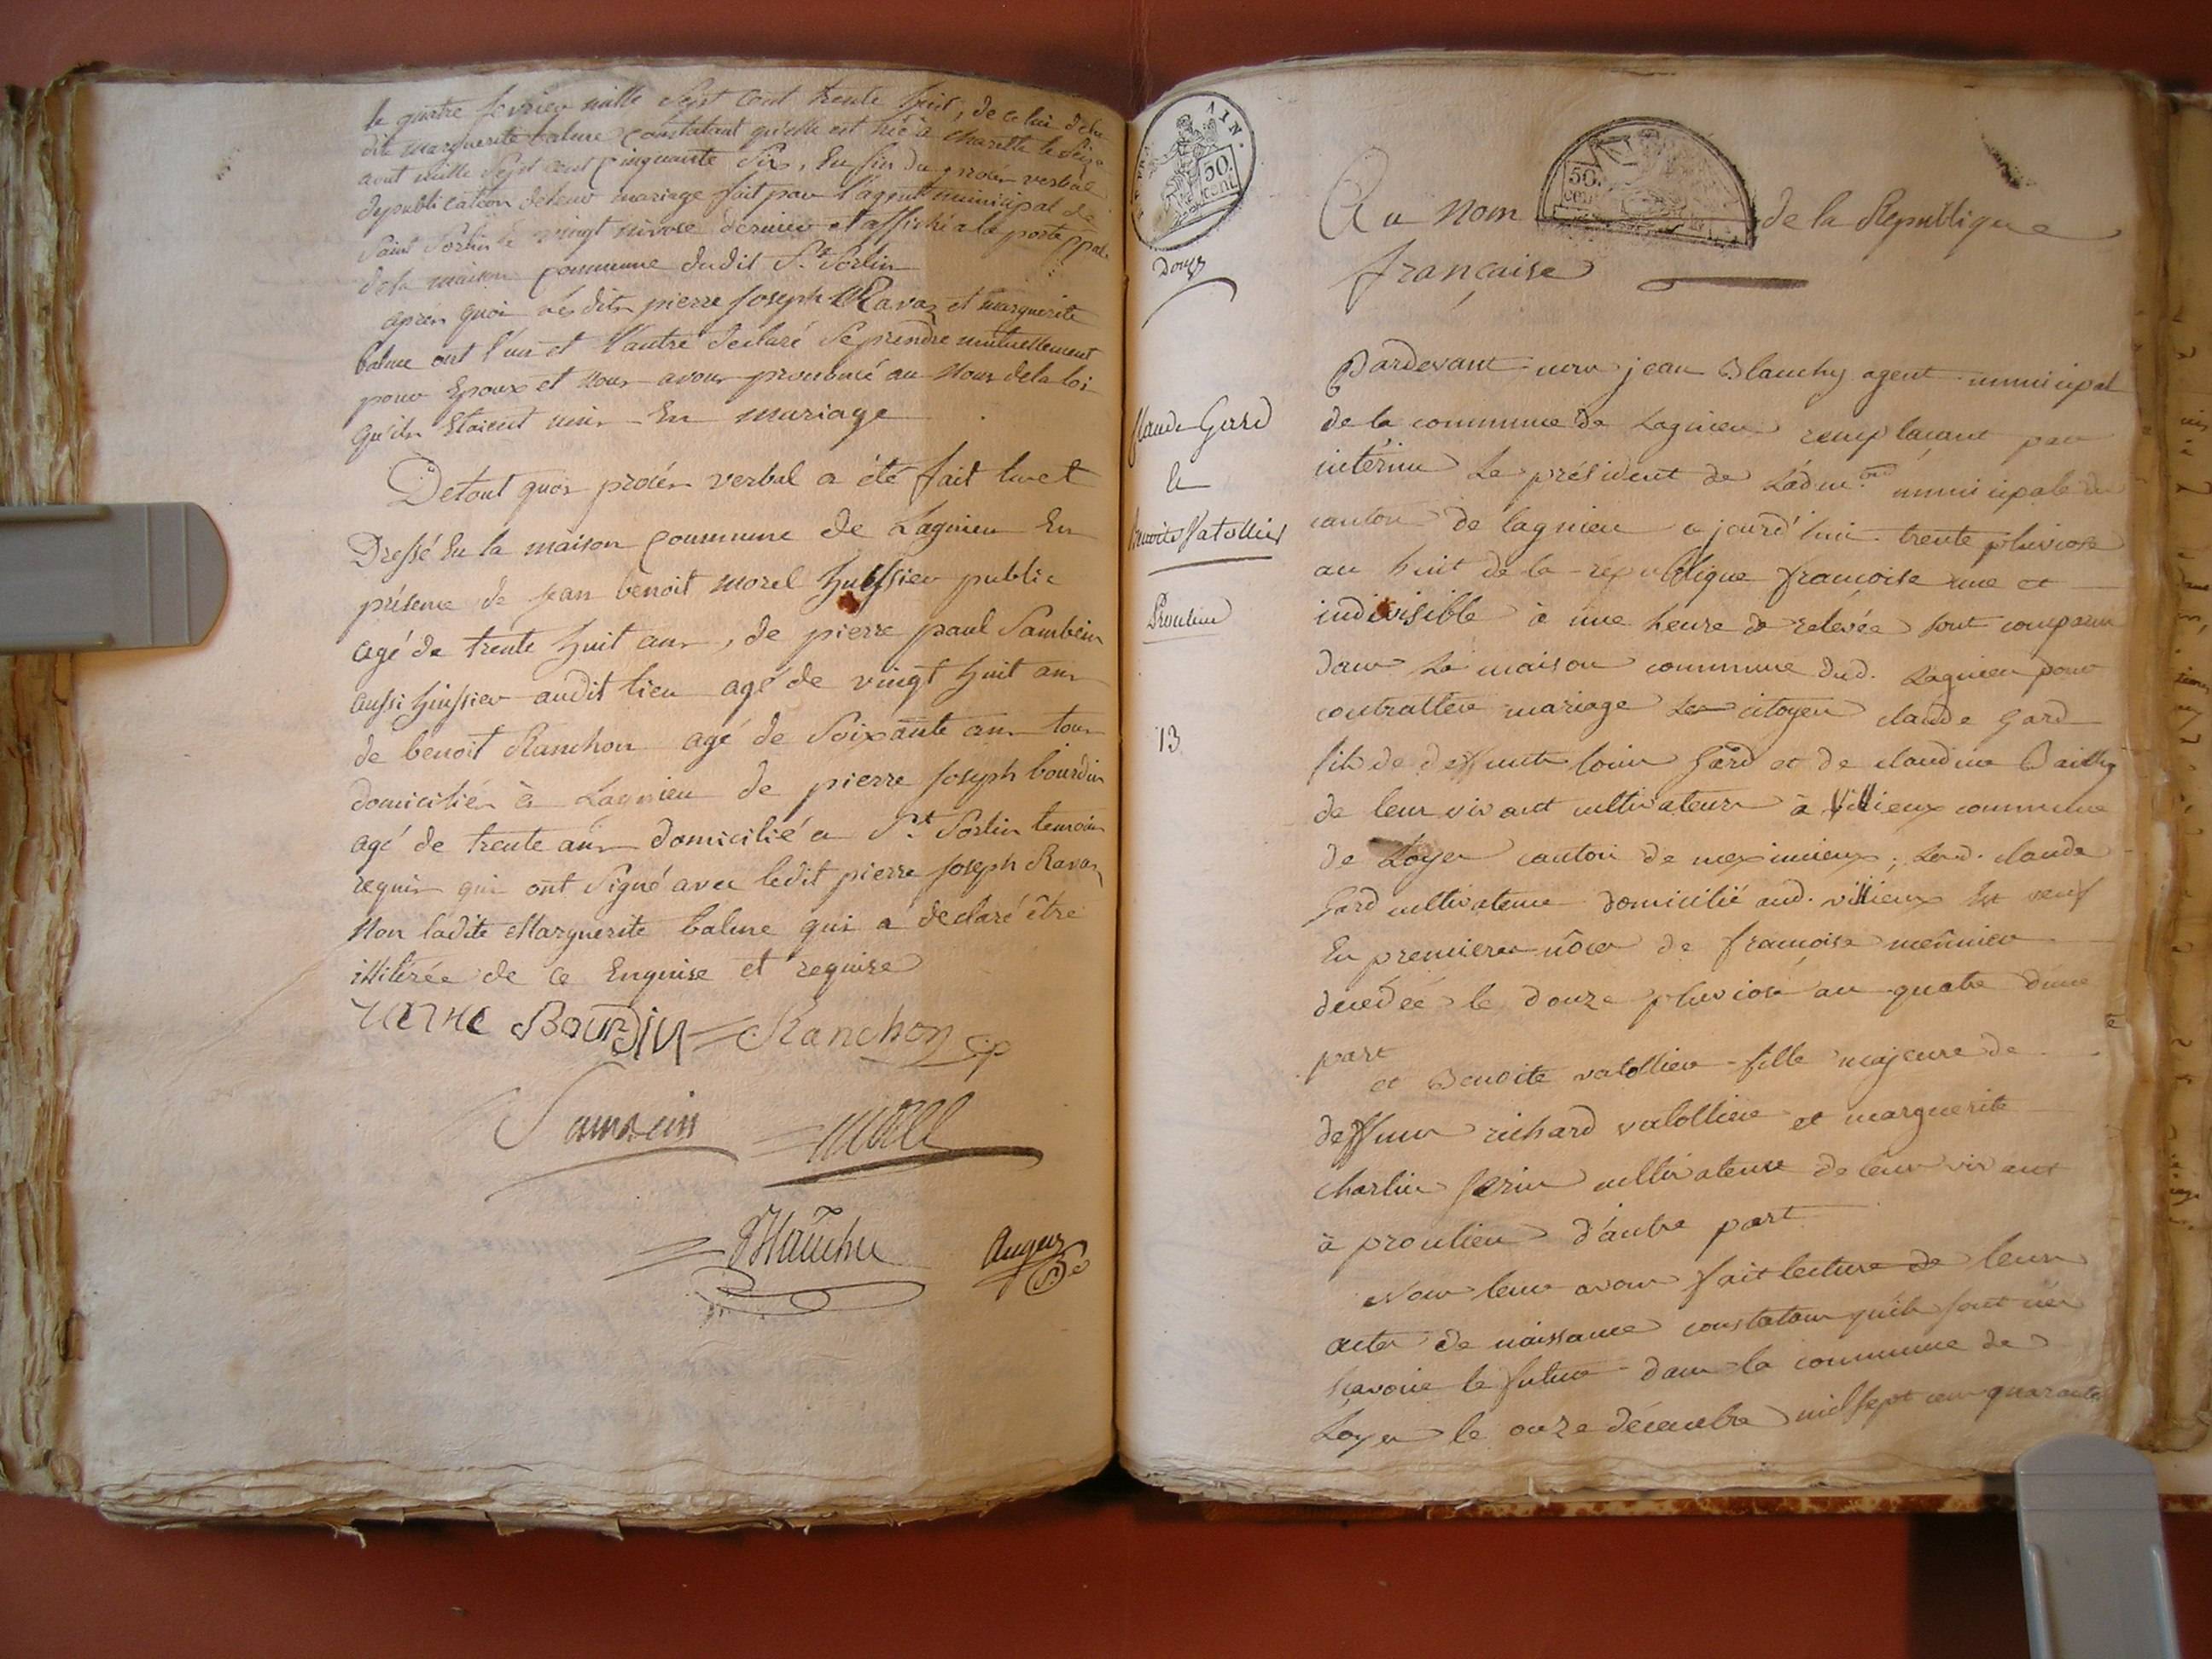 le quatre fevrier mille Sept cent trente huit, de celui de la
dite marguerite balme Constatant qu'elle est née à charette le seize
aout mille Sept cent Cinquante Six, En fin du procès verbal
de publication de leur mariage fait par l'agent municipal de
Saint Sorlin le vingt nivose dernier et affiché a la porte ppale
de la maison Commune dudit St Sorlin
après quoi lesdits pierre Joseph Ravaz et marguerite
balme ont l'un et l'autre declaré Se prendre mutuellement
pour Epoux et Nous avons prononcé au Nom de la loi
qu'ils Etaient unis En mariage
De tout quoi procès verbal a été fait lu et
Dressé En la maison Commune de Lagnieu En
présence de Jean benoit morel huissier public
agé de trente huit ans, de pierre paul Sambein
aussi huissier audit lieu agé de vingt huit ans
de benoit Ranchon agé de Soixante ans tous
domiciliés à Lagnieu de pierre Joseph bourdin
agé de trente ans domicilié a St Sorlin temoins
requis qui ont Signé avec ledit pierre Joseph Ravaz
Non ladite Marguerite balme qui a declaré être
illiterée de ce Enquise et requise
BOURDIN = Ranchon
Sambein = morel
= Blanchy
AIN.
50.
cent
50.
cen
Au Nom de la Republique
française
Claude Gard
Benoite Vatollier
Proulieu
13
Pardevant nous jean Blanchy agent municipal
de la commune de Lagnieu remplaçant par
interim Le président de L'adm.on municipale du
canton de lagnieu ajourd'hui trente pluviose
an huit de la république françoise une et
indivisible à une heure de relevée sont comparus
dans la maison commune dud. Lagnieu pour
contratter mariage Le citoyen claude Gard
fils de deffunts louis Gard et de claudine Bailly
de leur vivant cultivateurs à Villieux commune
de Loyes canton de meximieux; Led. claude
Gard cultivateur domicilié aud. villieux Est veuf
En premieres nôces de françoise meûnier
decedée le douze pluviose an quatre d'une
part
et Benoite vatollier fille majeure de
deffunts richard vatollier et marguerite
charlin cultivateurs de leur vivant
à proulieu d'autre part
Nous leur avons fait lecture de leurs
actes de naissance constatant qu'ils sont nés
sçavoir le futur dans la commune de
Loyes le onze décembre mil sept cent quarante